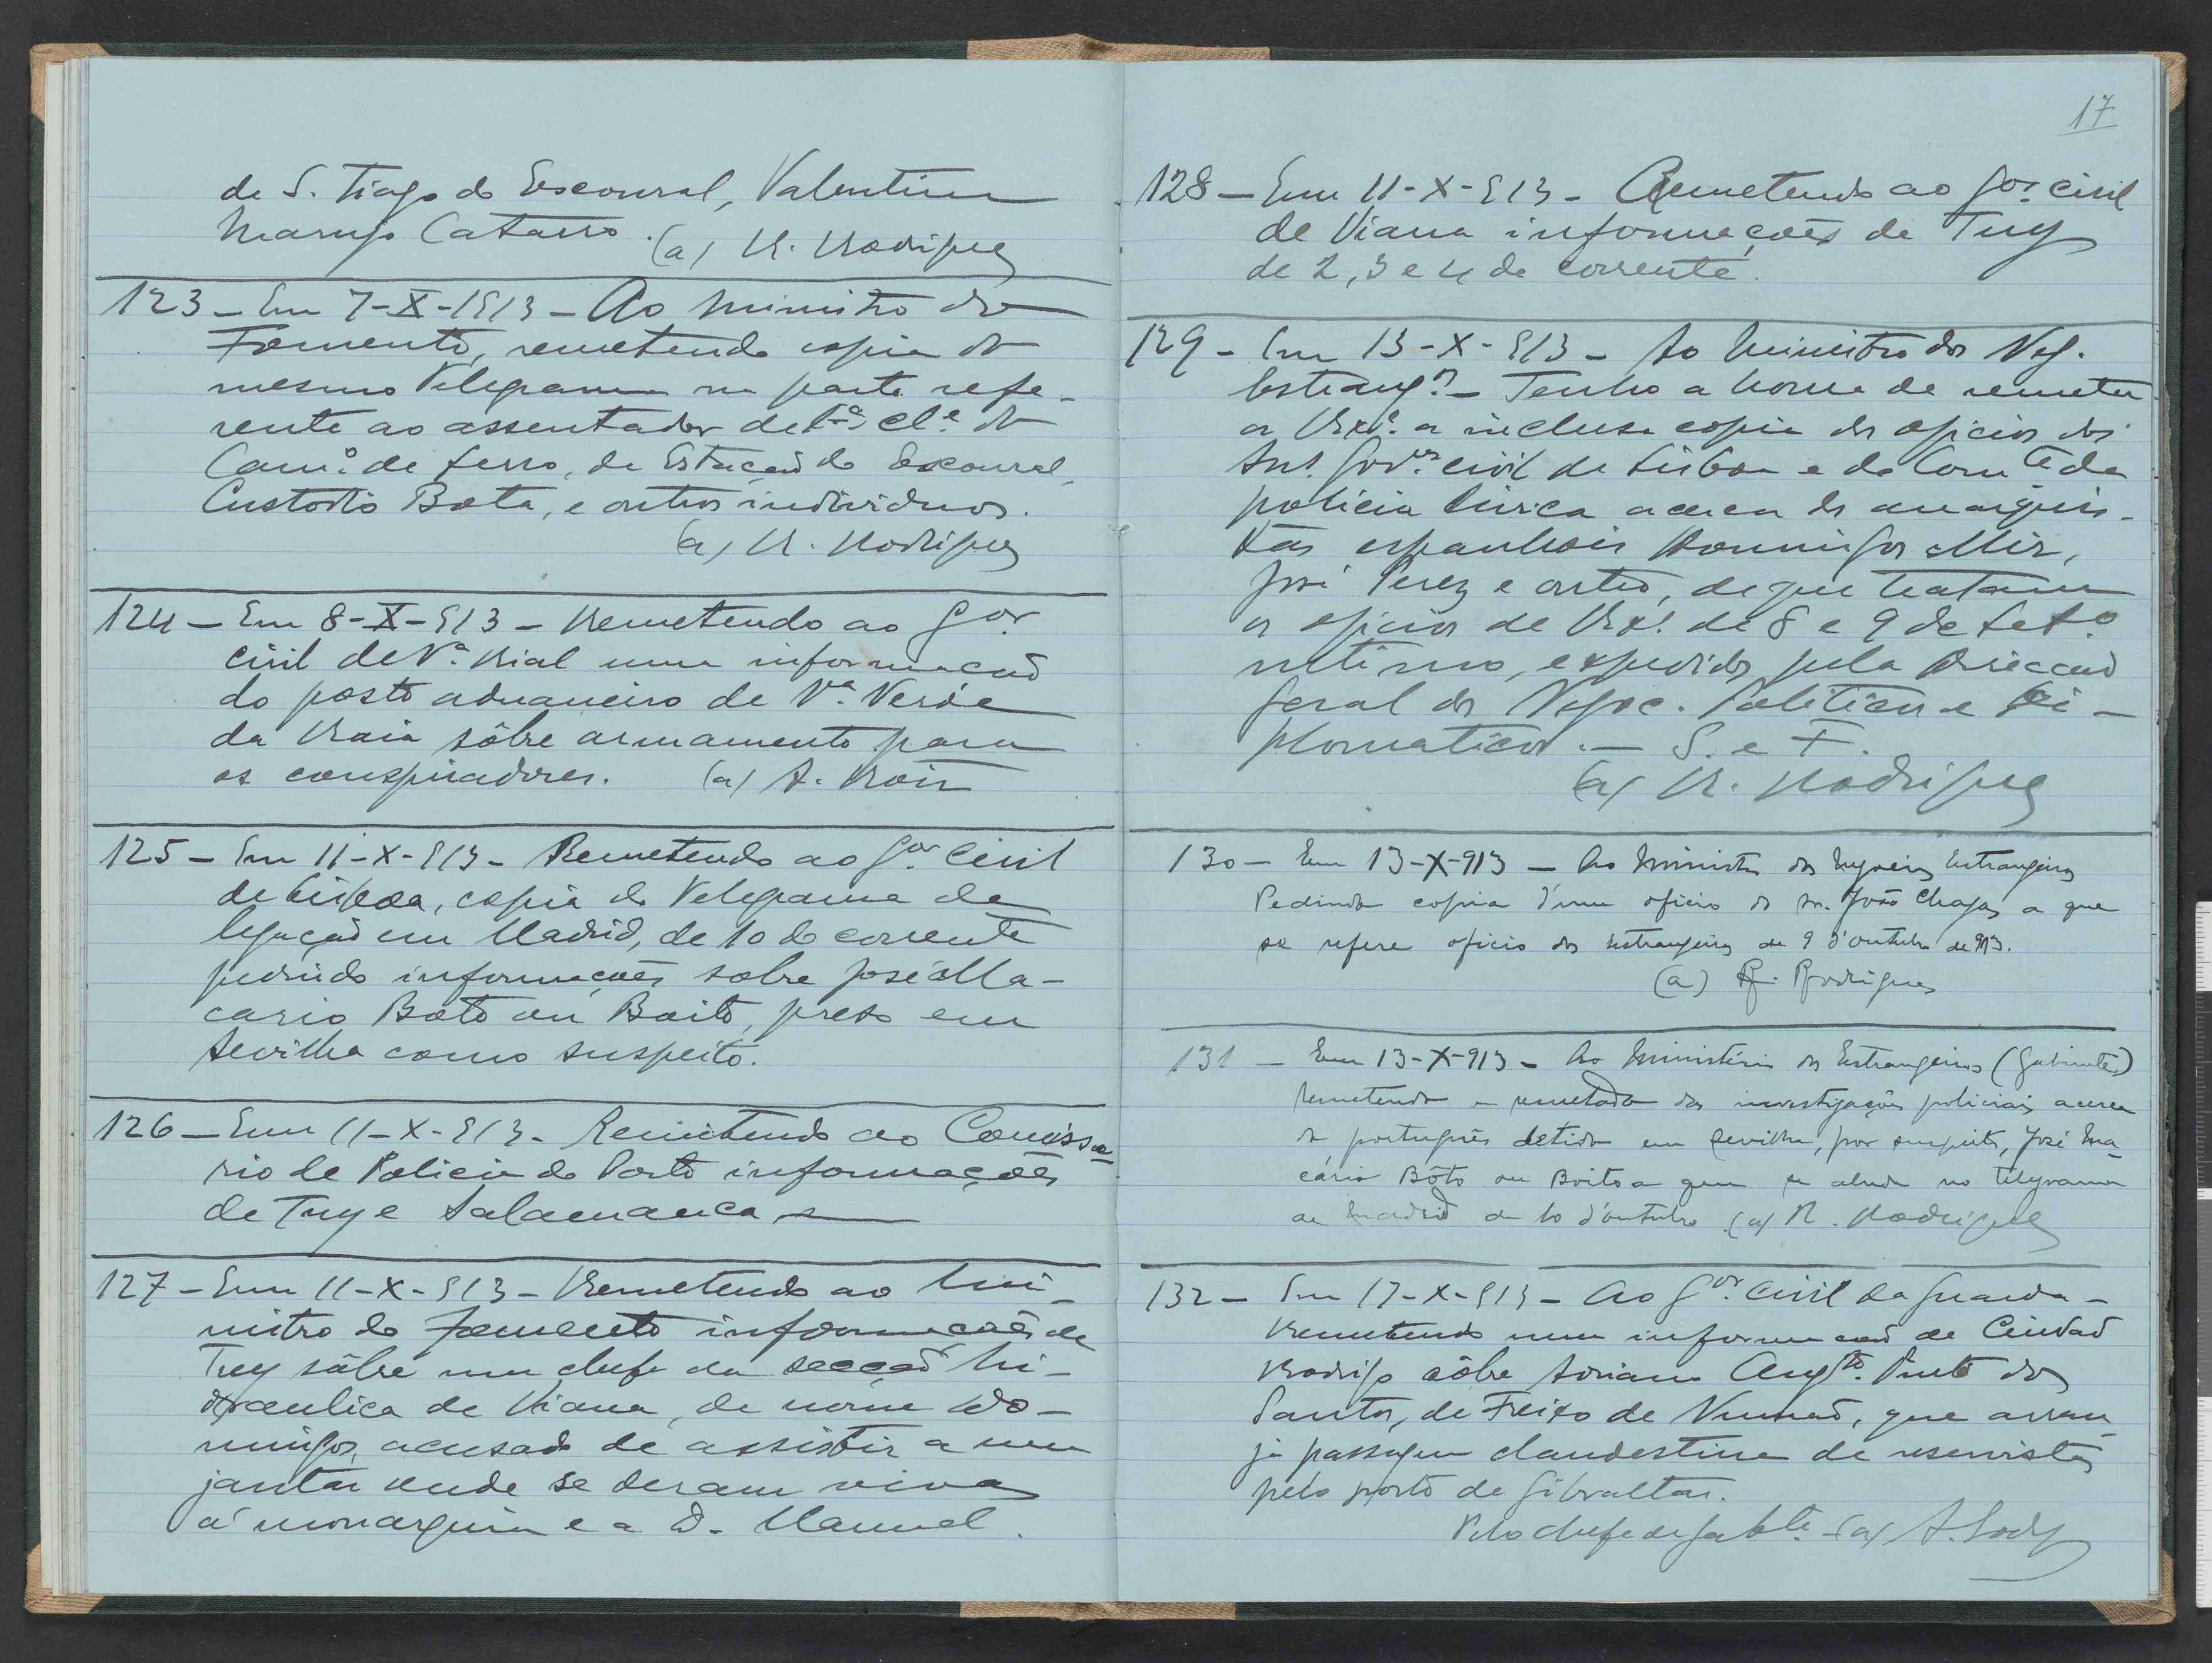 de S. Tiago do Escoural, Valentim
Marujo Catarro. (a) R. Rodrigues
123 - Em 7-X-1913 - Ao ministro do
Fomento, remetendo copia do
mesmo telegrama na parte refe-
rente ao assentador de 1ª clª do
Camº de ferro, da Estação do Escoural,
Custodio Bata, e outros individuos.
(a) R. Rodrigues
124 - Em 8-X-913 - Remetendo ao Gor
civil de Vª Rial uma informação
do posto aduaneiro de Vª Verde
da Raia sôbre armamento para
os conspiradores. (a) A.
125 - Em 11-X-913 - Remetendo ao Gor civil
de Lisboa, copia do telegrama da
legação em Madrid, de 10 do corrente
pedindo informações sobre José Ma-
cario Boto ou Boito, preso em
Sevilha como suspeito.
126 - Em 11-X-913 - Remetendo ao Comissa-
rio de Policia do Porto informações
de Tuy e Salamanca
127 - Em 11-X-913 - Remetendo ao Mi-
nistro do Fomento informações de
Tuy sôbre um chefe da secção hi-
draulica de Viana, de nome Do-
mingos, acusado de assistir a um
jantar onde se deram vivas
á monarquia e a D. Manuel.
17
128 - Em 11-X-913 - Remetendo ao Gor civil
de Viana informações de Tuy
de 2, 3 e 4 do corrente.
129 - Em 13-X-913 - Ao Ministro dos Neg.
Estrangos - Tenho a honra de remeter
a V. Exª a inclusa copia dos oficios dos
Snrs. Govres civil de Lisboa e do Comte da
policia civica acerca dos anarquis-
tas espanhois Domingos Mir,
José Perez e outro, de que tratam
os oficios de V. Exª de 8 e 9 de Setº
ultimo, expedidos pela Direcção
Geral dos Negoc. Politicos e Di-
plomaticos. - S. e F.
(a) R. Rodrigues
130 - Em 13-X-913 - Ao Ministro dos Negocios Estrangeiros
Pedindo copia d'um oficio do Sr. João Chagas a que
se refere oficio dos Estrangeiros de 9 d'outubro de 913.
(a) R. Rodrigues
131 - Em 13-X-913 - Ao Ministério dos Estrangeiros (Gabinete)
Remetendo o resultado das investigações policiais acerca
do português detido em Sevilha, por suspeito, José Ma-
cário Bôto ou Boito a quem se alude no telegrama
de Madrid de 10 d'outubro. (a) R. Rodrigues
132 - Em 17-X-913 - Ao Gor civil da Guarda -
Remetendo uma informação de Ciudad
Rodrigo sôbre Adriano Augto. Pinto dos
Santos, de Freixo de Numão, que arran-
ja passagem clandestina de reservistas
pelo porto de Gibraltar.
Pelo chefe de Gabte. (a) A.